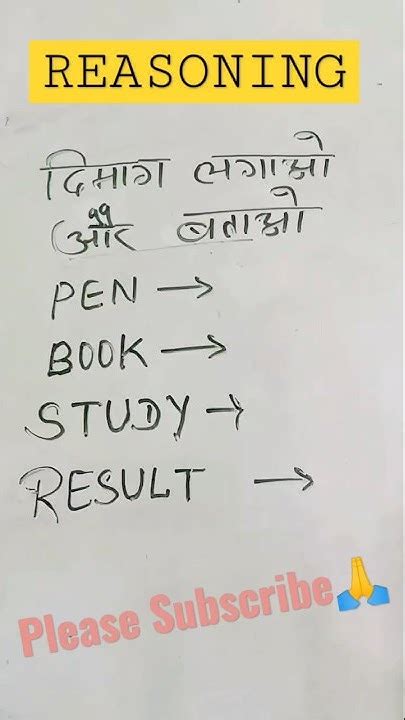 REASONING
दिमाग लगाओ
और बताओ
PEN →
BOOK →
STUDY →
RESULT →
Please Subscribe🙏